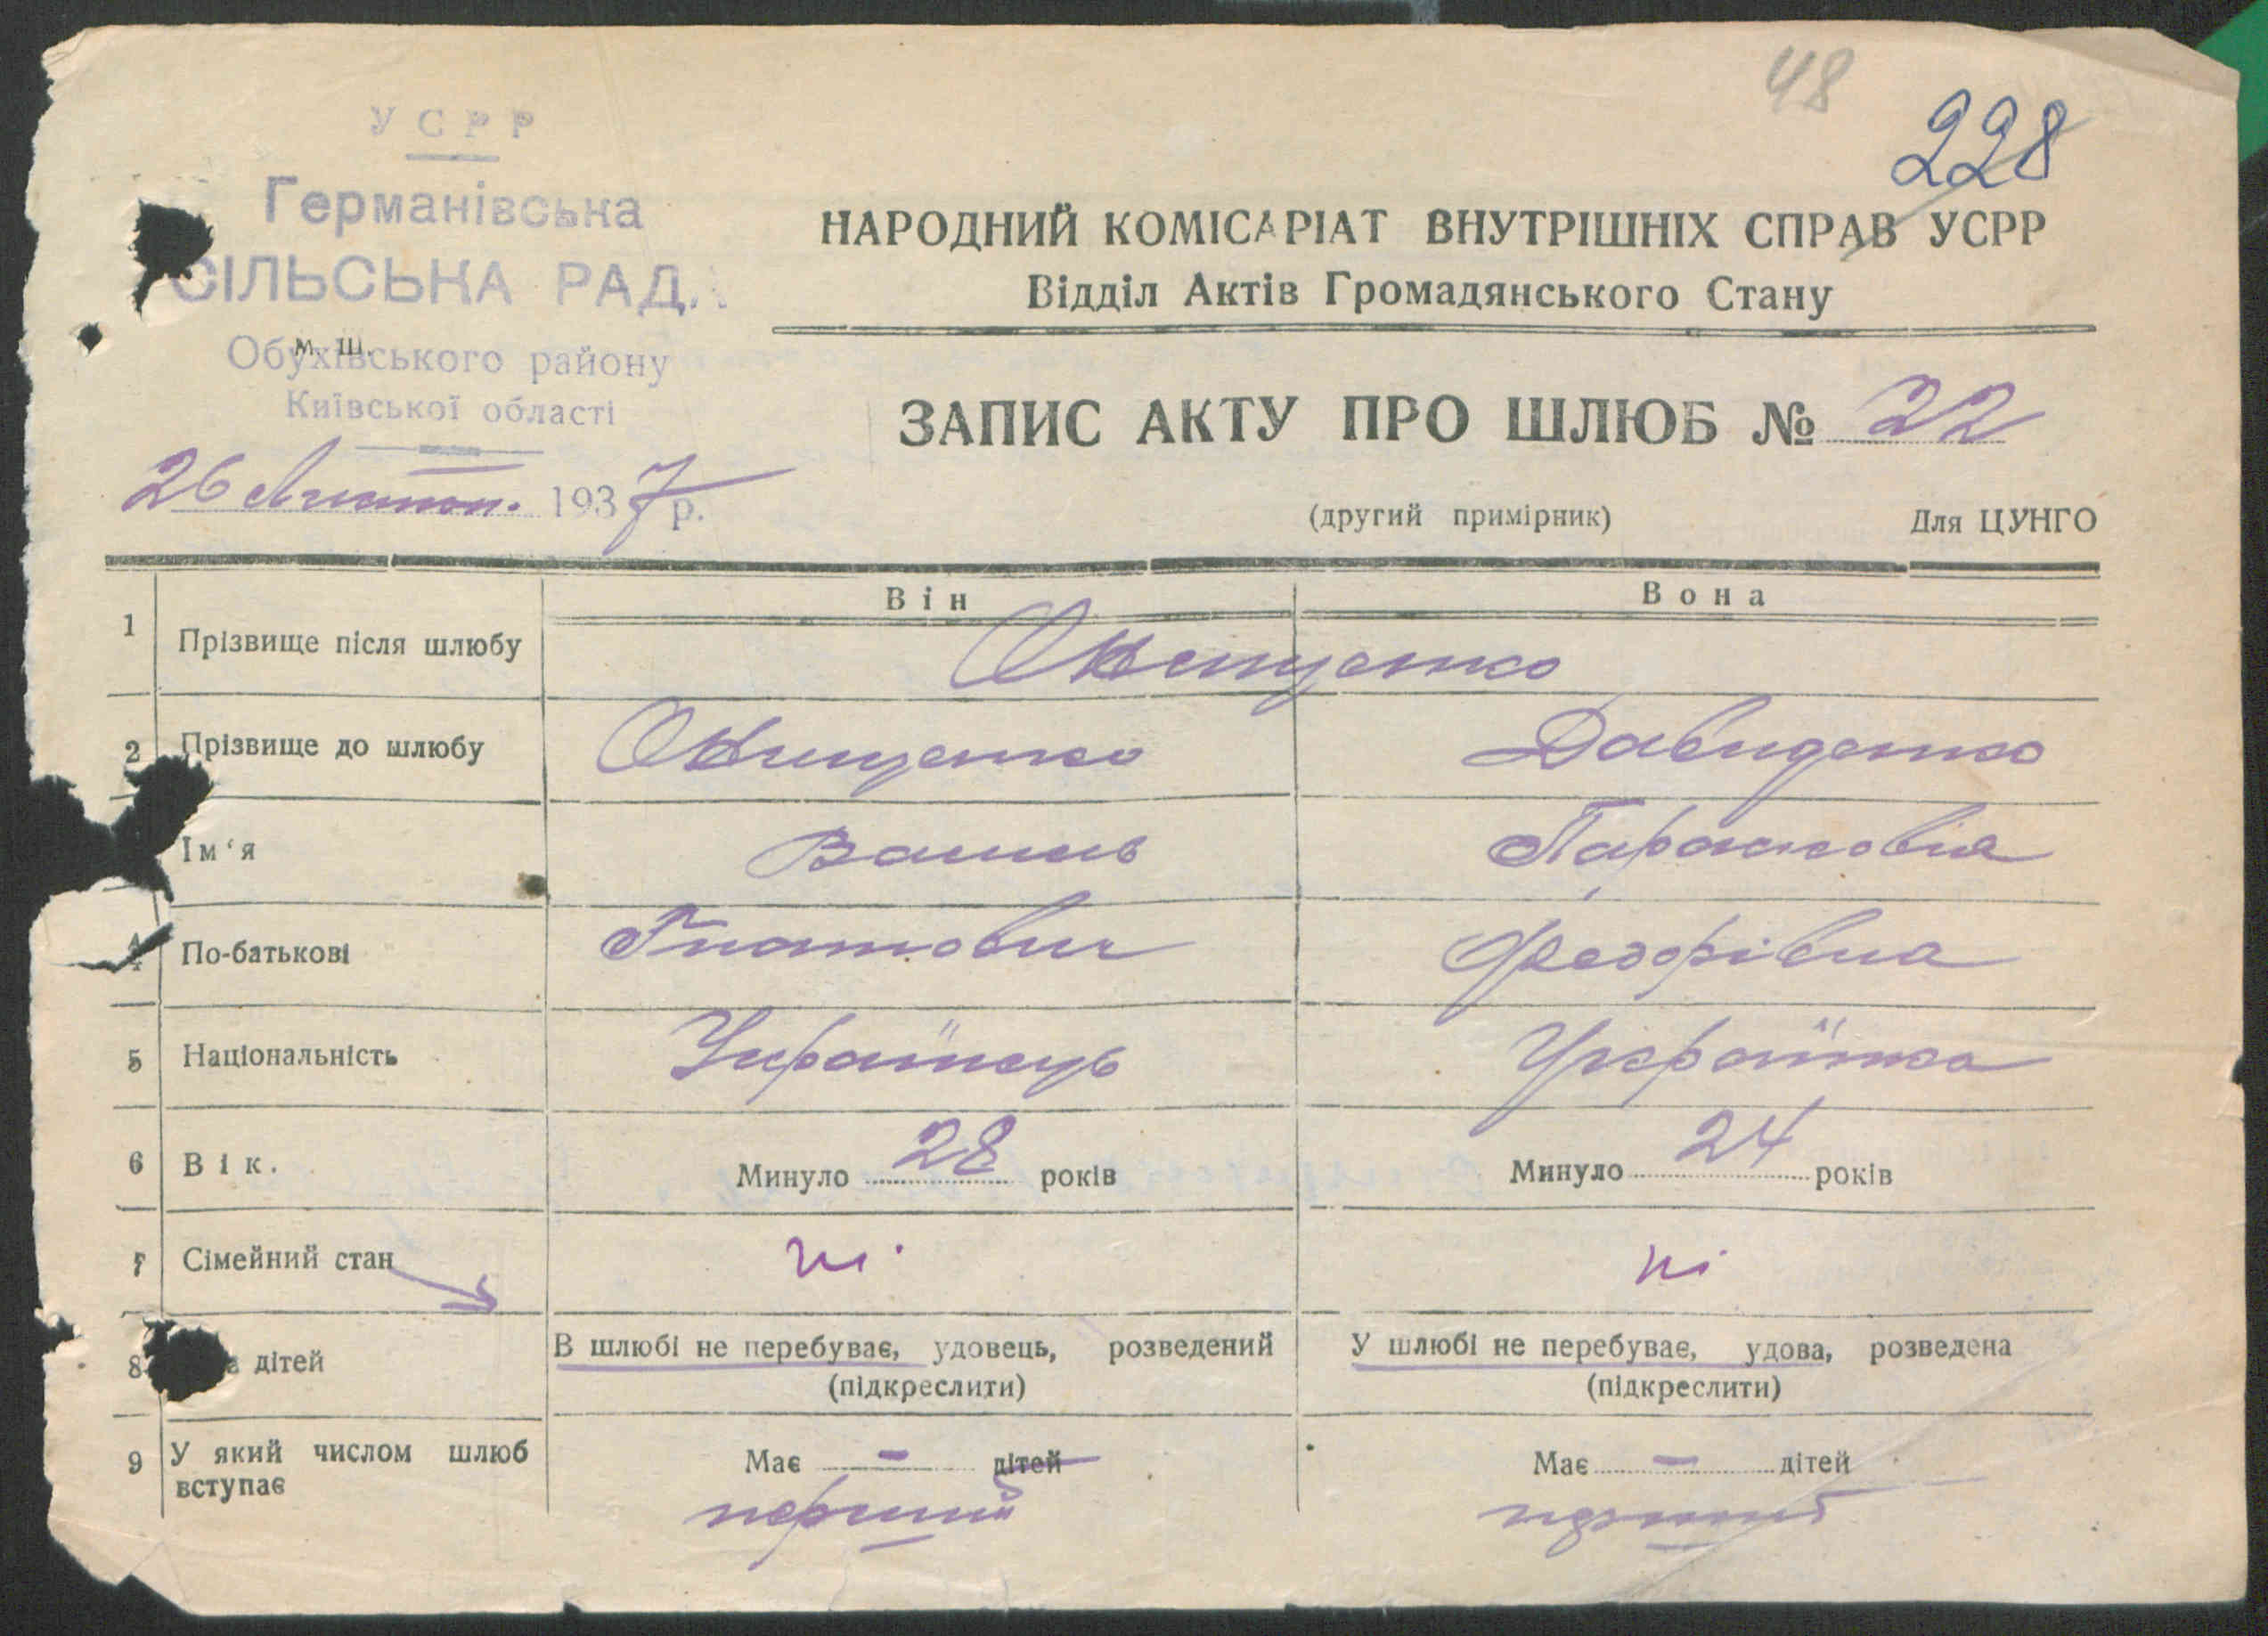 48
228
УСРР
Германівська
СІЛЬСЬКА РАД
м. ш.
Обухівського району
Київської області
26 Листоп. 1937 р.
НАРОДНИЙ КОМІСАРІАТ ВНУТРІШНІХ СПРАВ УСРР
Відділ Актів Громадянського Стану
ЗАПИС АКТУ ПРО ШЛЮБ № 22
(другий примірник) Для ЦУНГО
Він Вона
1 Прізвище після шлюбу Онищенко
2 Прізвище до шлюбу Онищенко Давиденко
Ім'я Василь Парасковія
4 По-батькові Гнатович Федорівна
5 Національність Українець Українка
6 Вік. Минуло 28 років Минуло 24 років
7 Сімейний стан ні ні
8 дітей В шлюбі не перебуває, удовець, розведений У шлюбі не перебуває, удова, розведена
(підкреслити) (підкреслити)
9 У який числом шлюб вступає Має - дітей Має - дітей
перший перший